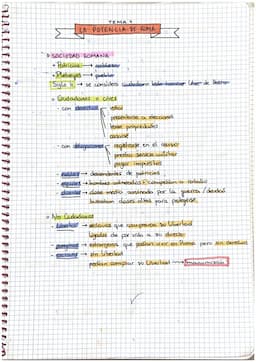 TEMA 4
LA POTENCIA DE ROMA
SOCIEDAD ROMANA
- Patricios →
- Plebeyos → pueblo
Siglo → se considera ciudadano todo hombre libre de
Ciudadanos o cives
- con derechos → votar
presentarse a elecciones
tener propiedades
casarse
- con obligaciones → registrarse en el censo
prestar servicio militar
pagar impuestos
- → descendientes de patricios
- → hombres adinerados
- → clase media arruinada por la guerra / deudas
buscaban clases altas para protegerse.
No Ciudadanos
- → esclavos que compraron su libertad
ligados de por vida a su
- → extranjeros que podían vivir en Roma pero sin derechos
- → sin libertad
podían comprar su libertad →